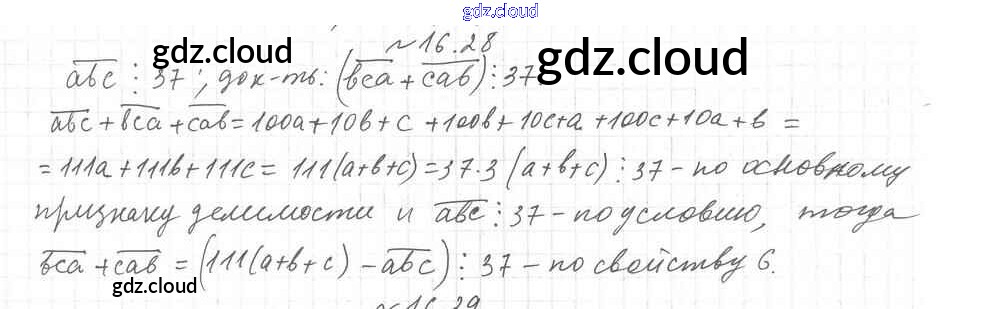 gdz.cloud
~16.28
gdz.cloud gdz.cloud
abc ⋮ 37; док-ть: (bca + cab) ⋮ 37
abc + bca + cab = 100a + 10b + c + 100b + 10c + a + 100c + 10a + b =
= 111a + 111b + 111c = 111(a+b+c) = 37·3 (a+b+c) ⋮ 37 - по основному
признаку делимости и abc ⋮ 37 - по условию, тогда
bca + cab = (111(a+b+c) - abc) ⋮ 37 - по свойству 6.
gdz.cloud